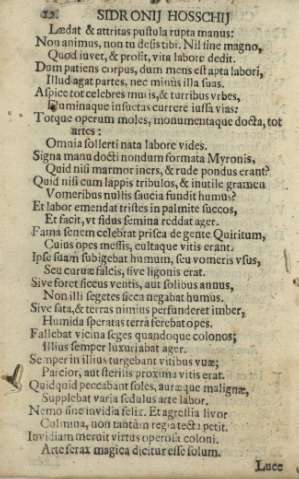 SIDRONIJ HOSSCHIJ
Lædat & attritas pustula rupta manus:
Non animus, non tu desis tibi. Nil sine magno,
Quod iuvet, & prosit, vita labore dedit.
Dum patiens corpus, dum mens est apta labori,
Illud agat partes, nec minùs illa suas.
Aspice tot celebres muris, & turribus vrbes,
Fluminaque insuetas currere iussa vias:
Torque operum moles, monumentaque docta, tot
artes:
Omnia sollerti nata labore vides.
Signa manu docti nondum formata Myronis,
Quid nisi marmor iners, & rude pondus erant?
Quid nisi cum lappis tribulos, & inutile gramen
Vomeribus nullis saucia fundit humus?
Et labor emendat tristes in palmite succos,
Et facit, vt fidus semina reddat ager.
Fama senem celebrat prisca de gente Quiritum,
Cuius opes messis, cultaque vitis erant.
Ipse suam subigebat humum, seu vomeris vsus,
Seu curuæ falcis, siue ligonis erat.
Sive foret siccus ventis, aut solibus annus,
Non illi segetes sicca negabat humus.
Sive sata, & terras nimius perfunderet imber,
Humida speratas terra ferebat opes.
Fallebat vicina seges quandoque colonos;
Illius semper luxuriabat ager.
Semper in illius turgebant vitibus vuæ;
Parcior, aut sterilis proxima vitis erat.
Quidquid peccabant soles, auræque malignæ,
Supplebat varia sedulus arte labor.
Nemo sine invidia felix. Et agrestia livor
Culmina, non tantùm regia tecta petit.
Invidiam meruit virtus operosa coloni.
Arte ferax magica dicitur esse solum.
Luce